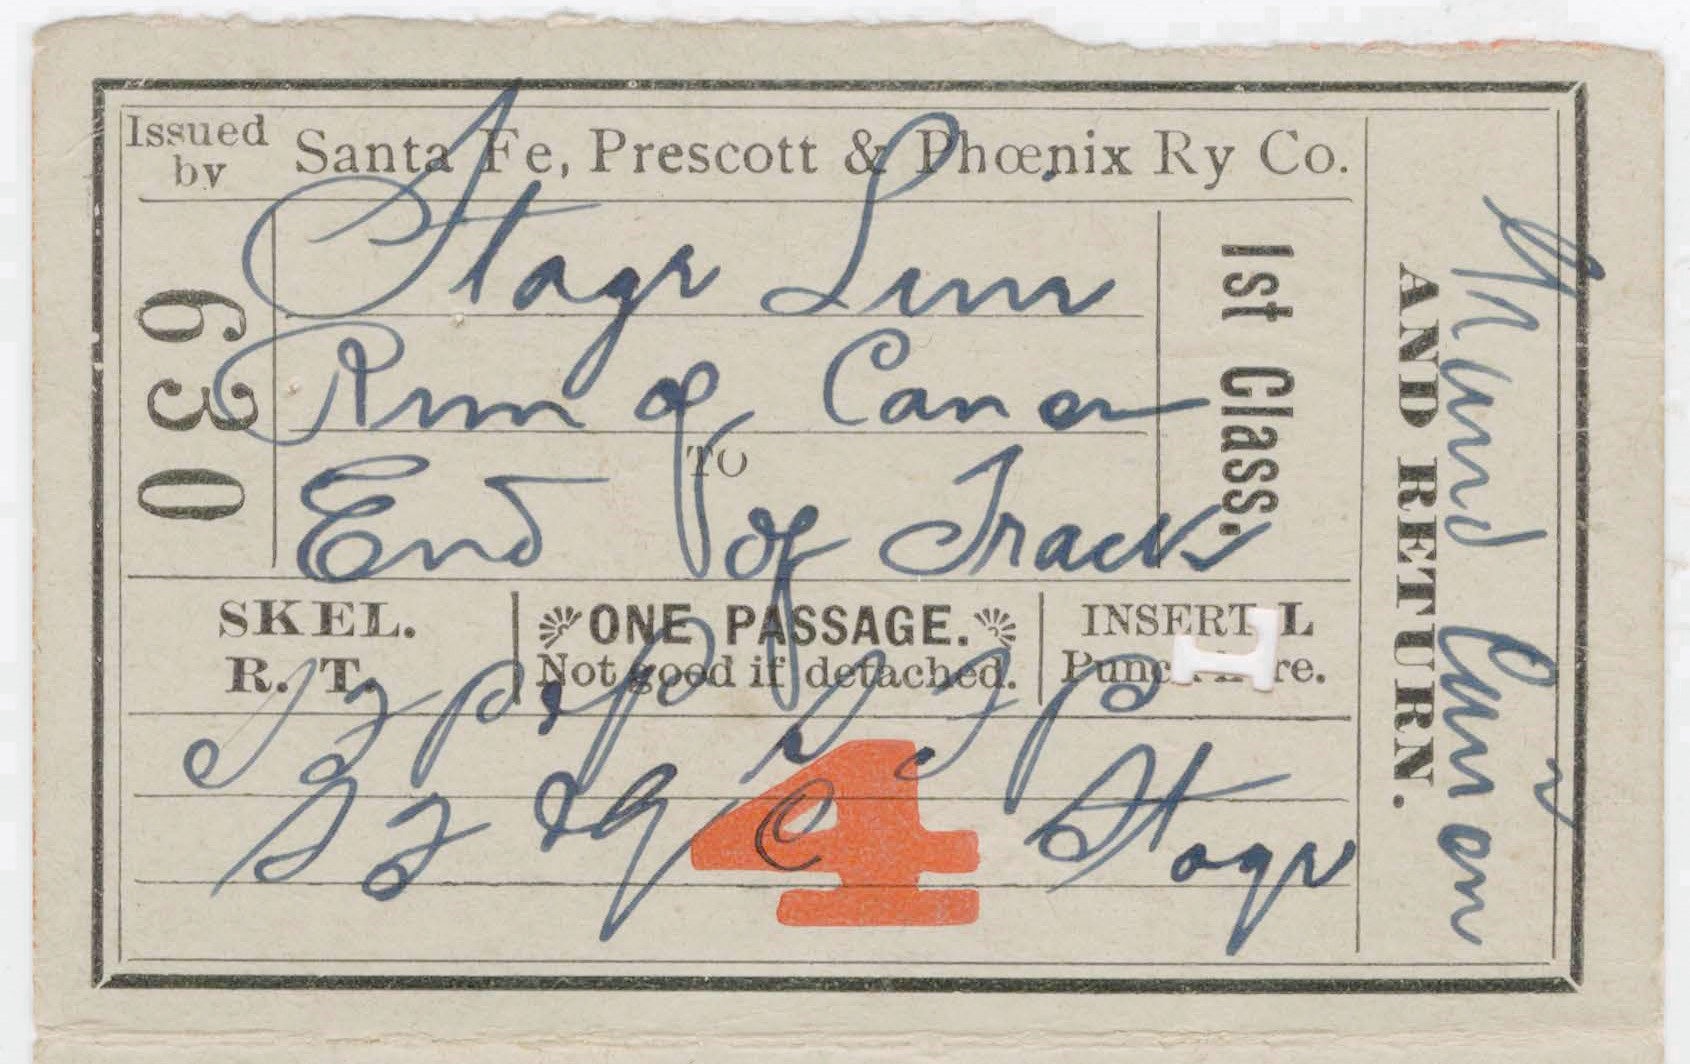 Issued by Santa Fe, Prescott & Phœnix Ry Co.
630
Stage Line
Rim of Canon
TO
End of Track
1st Class.
SKEL. R. T.
ONE PASSAGE.
Not good if detached.
INSERT L
Punc re.
4
Stage
AND RETURN.
Canon